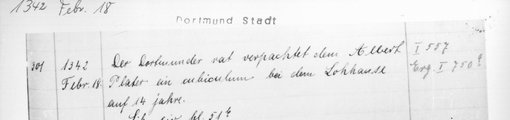 1342 Febr. 18
Dortmund Stadt
301 1342 Der Dortmunder rat verpachtet dem Albert I 557
Febr. 18. Plater ein cubiculum bei dem Lohhause Erg. I 750a
auf 14 jahre.
bl. 51a